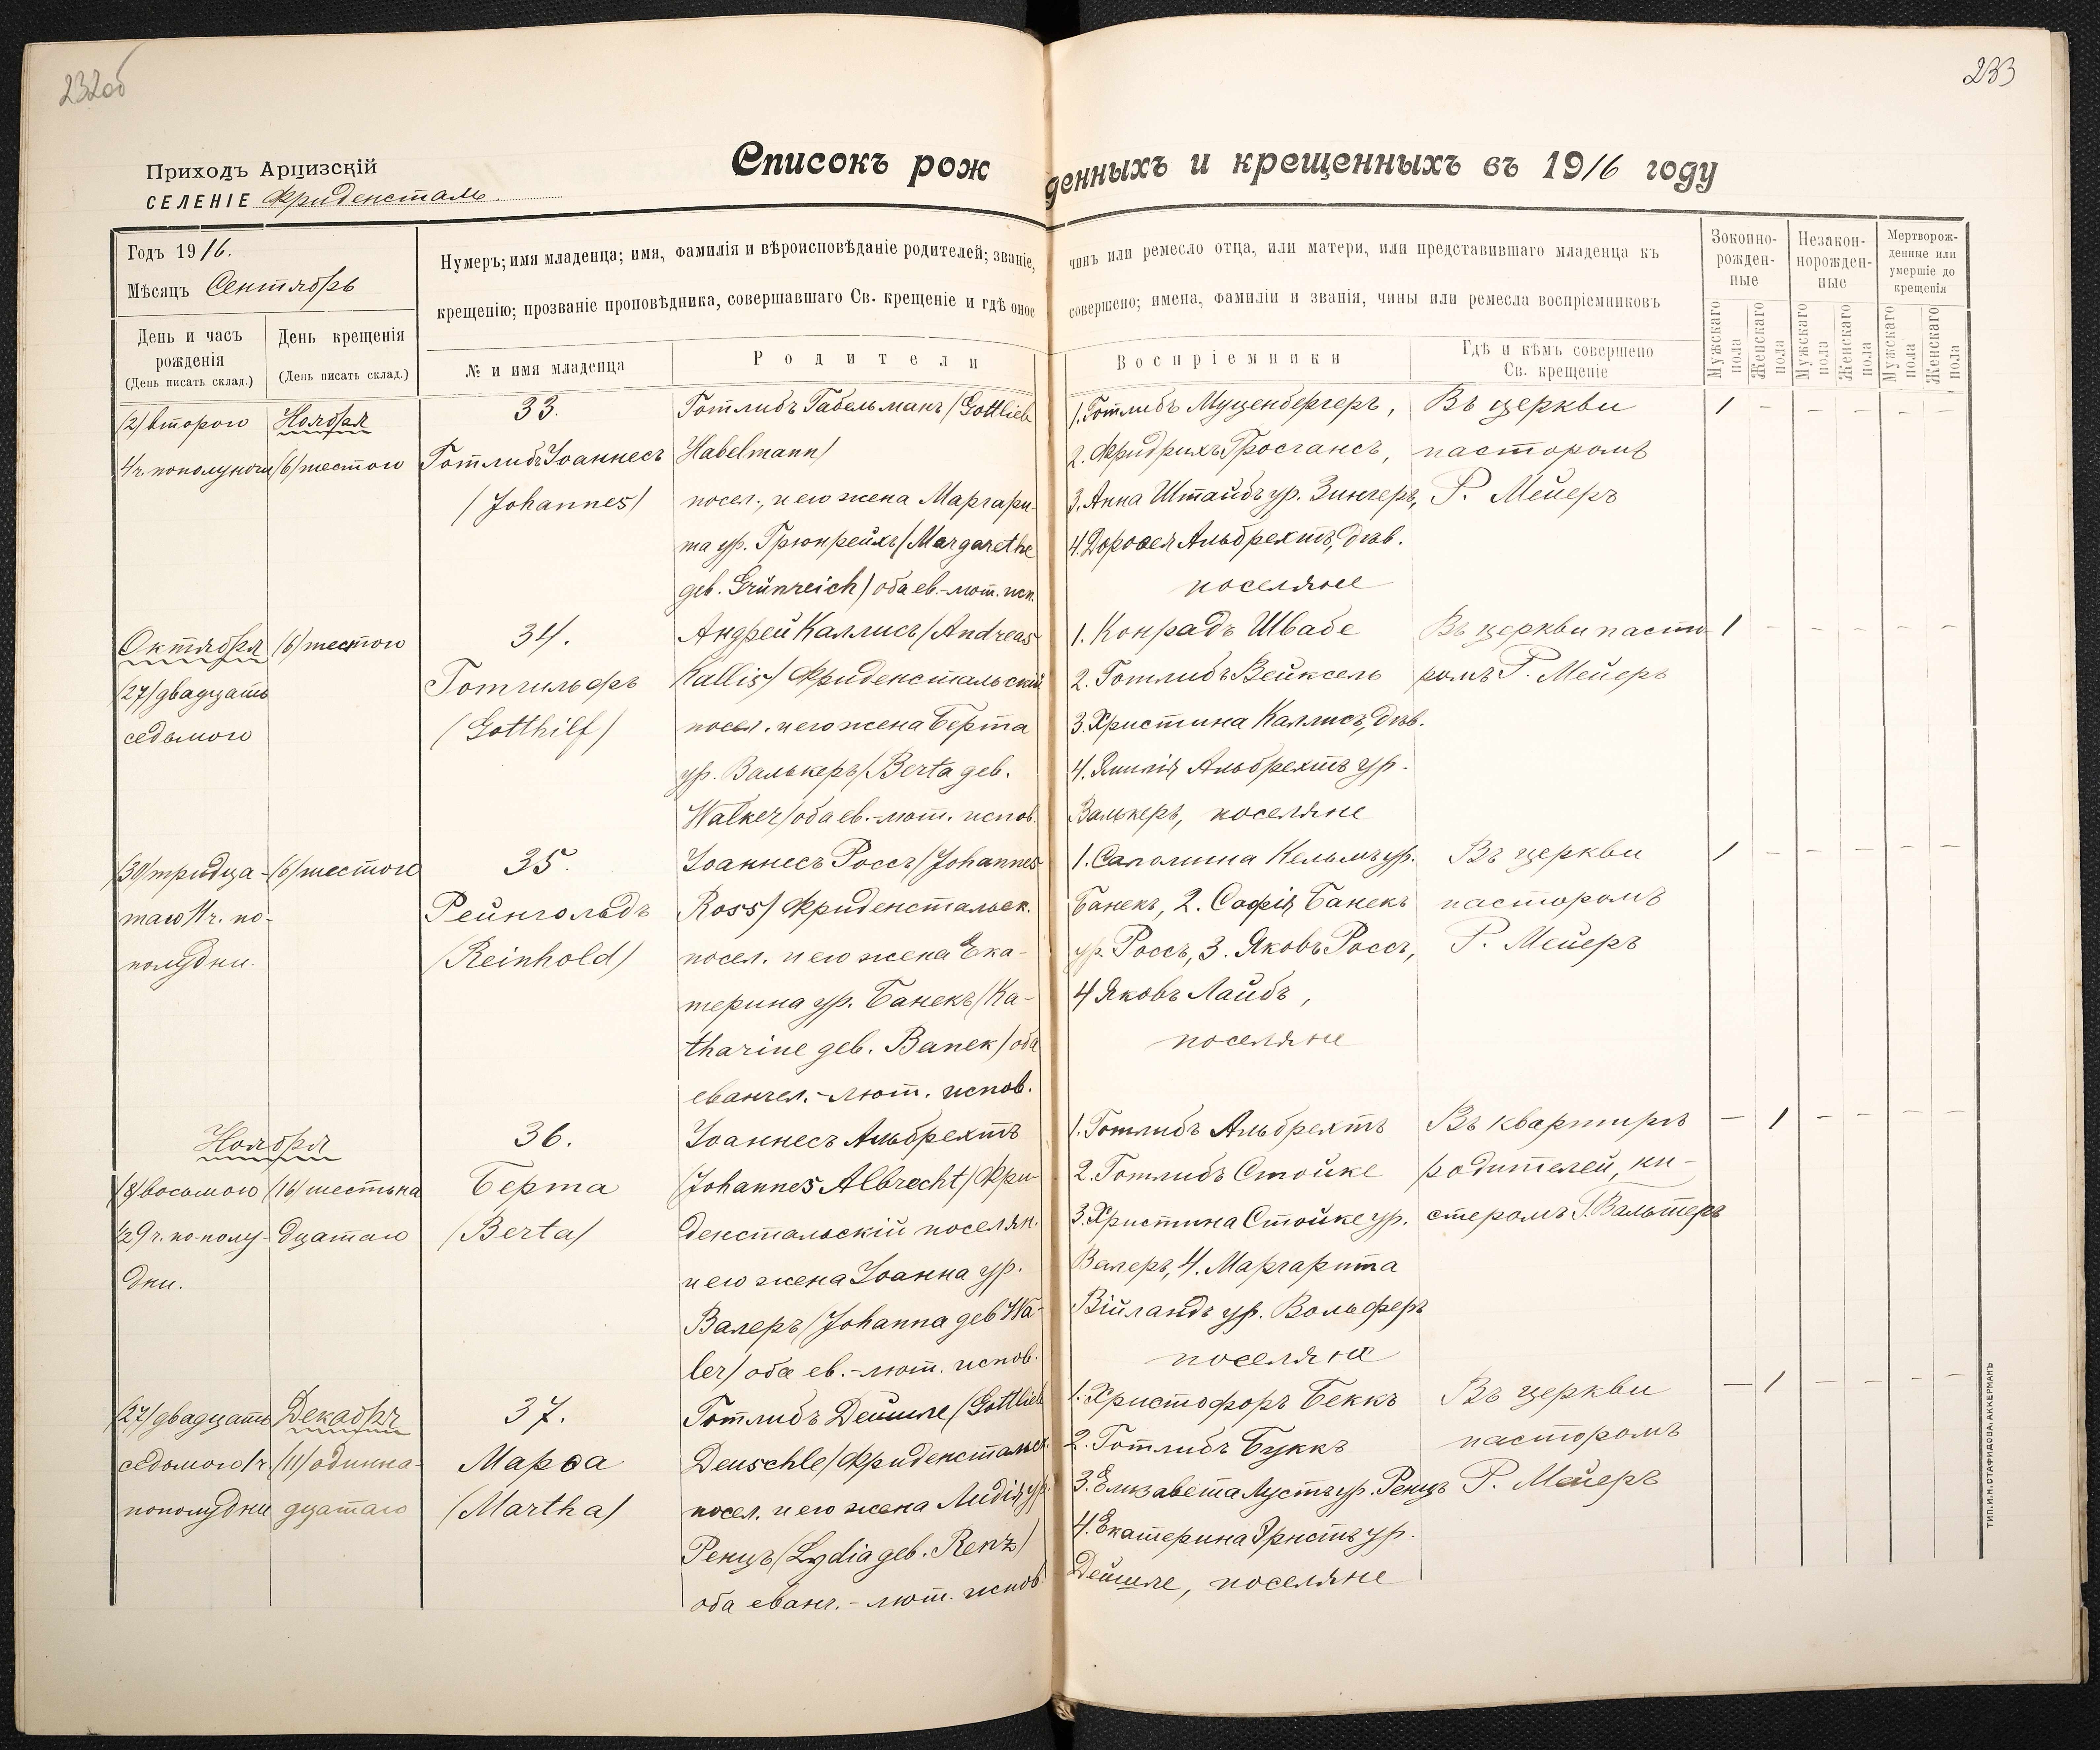 232об
233
Приходъ Арцизскій
СЕЛЕНІЕ Фриденсталь.
Списокъ рожденныхъ и крещенныхъ въ 1916 году
Годъ 1916.
Мѣсяцъ Сентябрь
День и часъ рожденія
(День писать склад.)
День крещенія
(День писать склад.)
Нумеръ; имя младенца; имя, фамилія и вѣроисповѣданіе родителей; званіе, чинъ или ремесло отца, или матери, или представившаго младенца къ
крещенію; прозваніе проповѣдника, совершавшаго Св. крещеніе и гдѣ оное совершено; имена, фамиліи и званія, чины или ремесла воспріемниковъ
№ и имя младенца
Родители
Воспріемники
Гдѣ и кѣмъ совершено
Св. крещеніе
Зоконно-
рожден-
ные
Незакон-
норожден-
ные
Мертворож-
денные или
умершіе до
крещенія
Мужскаго пола
Женскаго пола
Мужскаго пола
Женскаго пола
Мужскаго пола
Женскаго пола
/2/ второго
4 ч. пополуночи
Ноября
/6/ шестого
33.
Готлибъ Іоаннесъ
/Johannes/
Готлибъ Габельманъ /Gottlieb
Habelmann/
посел., и его жена Маргари-
та ур. Грюнрейхъ /Margarethe
geb. Grünreich/ оба ев.-лют. исп.
1. Готлибъ Муценбергеръ,
2. Фридрихъ Гросгансъ,
3. Анна Штайбъ ур. Зингеръ,
4. Дороѳея Альбрехтъ, дѣв.
поселяне
Въ церкви
пасторомъ
Р. Мейеръ
1 – – – – –
Октября
/27/ двадцать
седьмого
/6/ шестого
34.
Готгильфъ
/Gotthilf/
Андрей Каллисъ /Andreas
Kallis/ Фриденстальскій
посел. и его жена Берта
ур. Валькеръ /Berta geb.
Walker/ оба ев.-лют. испов.
1. Конрадъ Швабе
2. Готлибъ Вейксель
3. Христина Каллисъ, дѣв.
4. Эмилія Альбрехтъ ур.
Валькеръ, поселяне
Въ церкви пасто-
ромъ Р. Мейеръ
1 – – – – –
/30/ тридца-
таго 11 ч. по-
полудни.
/6/ шестого
35.
Рейнгольдъ
/Reinhold/
Іоаннесъ Россъ /Johannes
Ross/ Фриденстальск.
посел. и его жена Ека-
терина ур. Банекъ /Ka-
tharine geb. Banek/ оба
евангел.-лют. испов.
1. Каролина Кельмъ ур.
Банекъ, 2. Софія Банекъ
ур. Россъ, 3. Яковъ Россъ,
4 Яковъ Лайбъ,
поселяне
Въ церкви
пасторомъ
Р. Мейеръ
1 – – – – –
Ноября
/8/ восьмого
½9 ч. по-полу-
дни.
/16/ шестьна
дцатаго
36.
Берта
/Berta/
Іоаннесъ Альбрехтъ
/Johannes Albrecht/ Фри-
денстальскій поселян.
и его жена Іоанна ур.
Валеръ /Johanna geb Wa-
ler/ оба ев.-лют. испов.
1. Готлибъ Альбрехтъ
2. Готлибъ Стойке
3. Христина Стойке ур.
Валеръ, 4. Маргарита
Війландъ ур. Вольферъ
поселяне
Въ квартирѣ
родителей, ки-
стеромъ Г. Вальтеръ
– 1 – – – –
/27/ двадцать
седьмого 1 ч.
пополудни
Декабря
/11/ одинна-
дцатаго
37.
Марѳа
/Martha/
Готлибъ Дейшле /Gottlieb
Deuschle/ Фриденстальск.
посел. и его жена Лидія ур.
Ренцъ /Lydia geb. Renz/
оба еванг.-лют. испов.
1. Христофоръ Беккъ
2. Готлибъ Буккъ
3. Елизавета Лустъ ур. Ренцъ
4. Екатерина Эрнстъ ур.
Дейшле, поселяне
Въ церкви
пасторомъ
Р. Мейеръ
– 1 – – – –
ТИП. И. Н. СТАФИДОВА. АККЕРМАНЪ